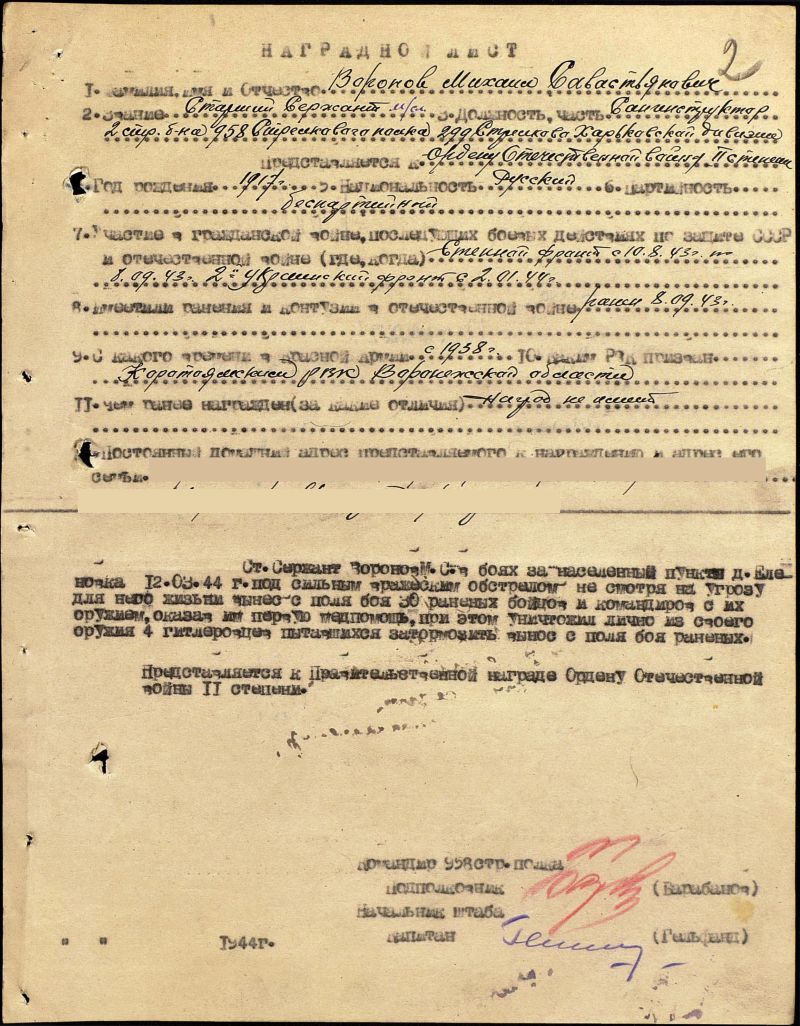 НАГРАДНОЙ ЛИСТ
2
1. Фамилия, имя и Отчество Воронов Михаил Савастьянович
2. Звание Старший Сержант м/сл. 3. Должность, часть Санинструктор
2 стр. б-на 958 Стрелкового полка 299 Стрелково Харьковской дивизии
Представляется к Ордену Отечественной войны II степени
4. Год рождения 1917г. 5. Национальность Русский 6. Партийность
беспартийный
7. Участие в гражданской войне, последующих боевых действиях по защите СССР
и отечественной войне (где, когда) Степной фронт с 10.8.43г. по
8.09.43г. 2й Украинский фронт с 2.01.44г.
8. Имеет ли ранения и контузии в отечественной войне ранен 8.09.43г.
9. С какого времени в Красной Армии с 1938г. 10. Каким РВК призван
Коротоякским РВК Воронежской области
11. чем ранее награжден (за какие отличия) Наград не имеет
12. Постоянный домашний адрес представляемого к награждению и адрес его
семьи.
Ст. Сержант Воронов М. С. в боях за населенный пункт д. Еле
новка 12.03.44 г. под сильным вражеским обстрелом не смотря на угрозу
для него жизьни вынес с поля боя 30 раненых бойцов и командиров с их
оружием, оказав им первую медпомощь, при этом уничтожил лично из своего
оружия 4 гитлеровцев пытавшихся затормозить вынос с поля боя раненых.
Представляется к Правительственной награде Ордену Отечественной
войны II степени.
Командир 958 стр. полка
Подполковник (Барабанов)
Начальник штаба
Капитан (Гельфанд)
" " 1944г.